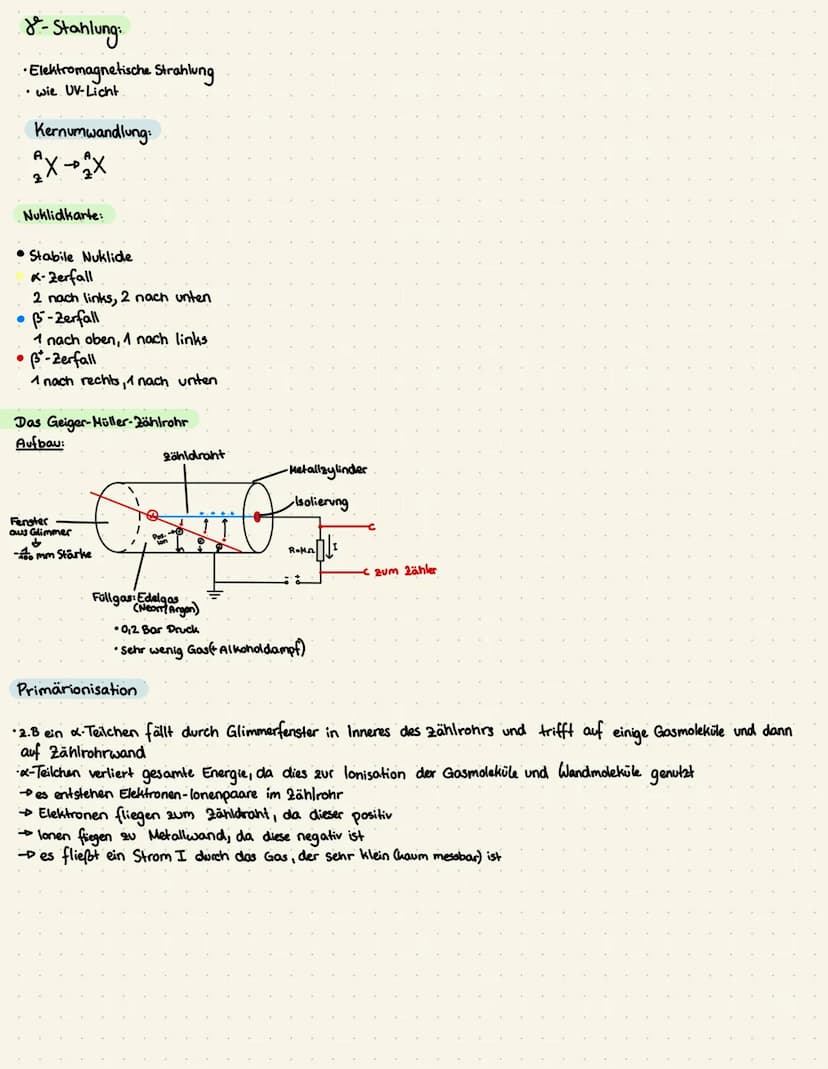 γ-Stahlung:
• Elektromagnetische Strahlung
• wie UV-Licht
Kernumwandlung:
A/Z X → A/Z X
Nuklidkarte:
• Stabile Nuklide
• α-Zerfall
2 nach links, 2 nach unten
• β⁻-Zerfall
1 nach oben, 1 nach links
• β⁺-Zerfall
1 nach rechts, 1 nach unten
Das Geiger-Müller-Zählrohr
Aufbau:
Zähldraht
Metallzylinder
Isolierung
Fenster
aus Glimmer
mm Stärke
Pos.
Ion
I
zum Zähler
Füllgas: Edelgas
(Neon/Argon)
• 0,2 Bar Druck
• sehr wenig Gas (+ Alkoholdampf)
Primärionisation
• z.B ein α-Teilchen fällt durch Glimmerfenster in Inneres des Zählrohrs und trifft auf einige Gasmoleküle und dann
auf Zählrohrwand
• α-Teilchen verliert gesamte Energie, da dies zur Ionisation der Gasmoleküle und Wandmoleküle genutzt
→ es entstehen Elektronen-Ionenpaare im Zählrohr
→ Elektronen fliegen zum Zähldraht, da dieser positiv
→ Ionen fiegen zu Metallwand, da diese negativ ist
→ es fließt ein Strom I durch das Gas, der sehr klein (kaum messbar) ist